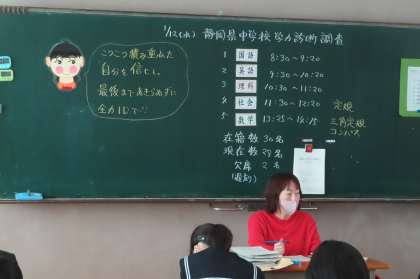 1/12(水) 静岡県中学校学力診断調査
こつこつ積み重ねた
自分を信じ、
最後まであきらめずに
全力で
1 国語 8:30~9:20
2 英語 9:30~10:20
3 理科 10:30~11:20
4 社会 11:30~12:20 定規
5 数学 13:25~14:15 三角定規
コンパス
在籍数 30名
現在数 28名
欠席 2名
(遅刻)